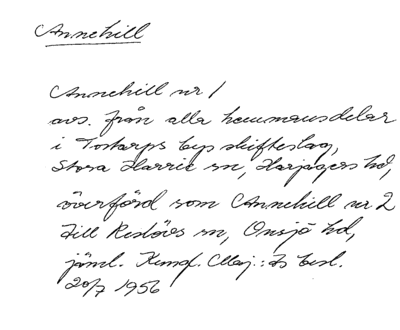 Annehill
Annehill nr 1
avs. från alla hemmansdelar
i Tostarps bys skifteslag,
Stora Harrie sn, Harjagers hd,
överförd som Annehill nr 2
till Reslövs sn, Onsjö hd,
jäml. Kungl. Maj:ts besl.
20/7 1956